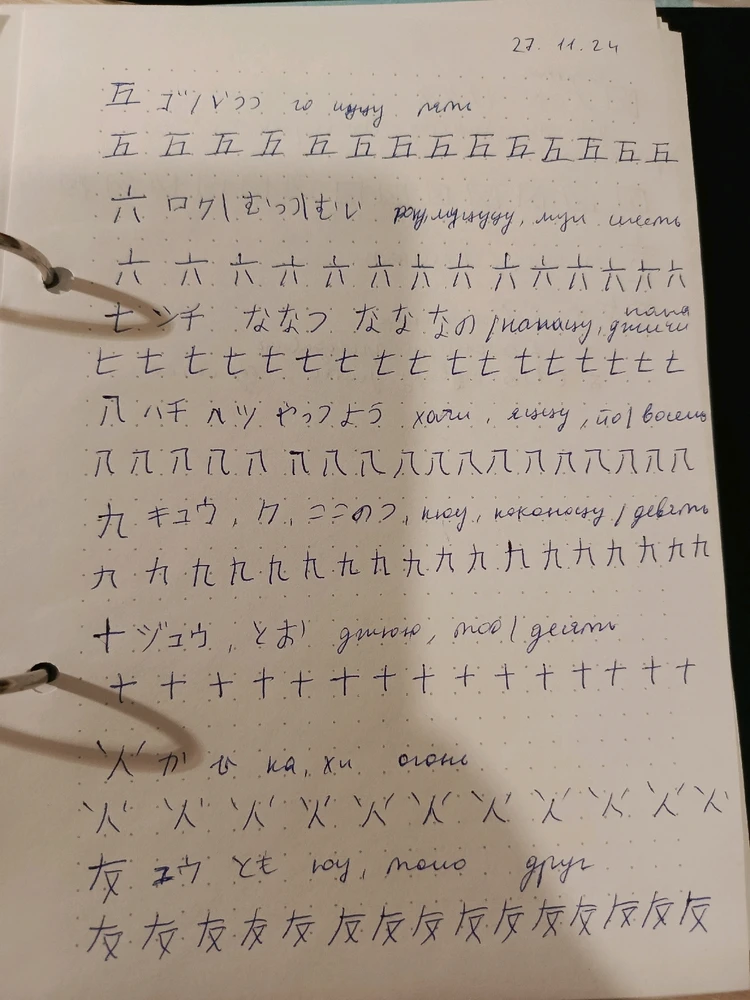 27. 11. 24
五 ゴ/いつつ го ицуцу пять
五 五 五 五 五 五 五 五 五 五 五 五 五 五
六 ロク/むっつ/むい року, муцуцу, муи шесть
六 六 六 六 六 六 六 六 六 六 六 六 六 六
七 シチ ななつ なな なの /нанацу, нана джичи
七 七 七 七 七 七 七 七 七 七 七 七 七 七 七
八 ハチ ハツ やっつ よう хачи, яццу, йо/ восемь
八 八 八 八 八 八 八 八 八 八 八 八 八 八 八 八 八 八
九 キュウ, ク, ここのつ, кюу, коконоцу / девять
九 九 九 九 九 九 九 九 九 九 九 九 九 九 九 九 九
十 ジュウ, とお/ джюю, тоо/ десять
十 十 十 十 十 十 十 十 十 十 十 十 十 十 十
火 か ひ ка, хи огонь
火 火 火 火 火 火 火 火 火 火 火
友 ユウ とも юу, томо друг
友 友 友 友 友 友 友 友 友 友 友 友 友 友 友